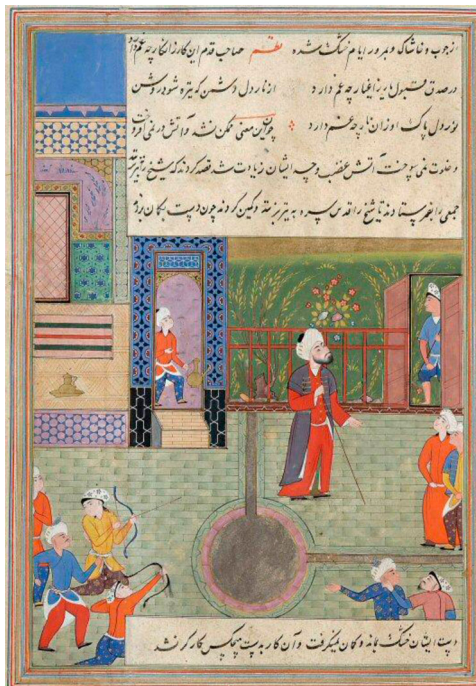 از چوب و خاشاک و بمرور ایام خشک شده نظم صاحب قدم این کار ز انکار چه غم دارد
در صدق مقبول بر ز اغیار چه غم دارد از نار دل دشمن کو تیره شود در
نور دل پاک او زان نار چه غم دارد چون این معنی ممکن نشد و آتش در نمی گرفت
و خلوت نمی سوخت آتش غضب و جهل ایشان زیادت شد قصه کردند که شیخ را تیر زنند
جمعی را بفرستادند تا شیخ را قدس سره به تیر کردند چون دست بکمان بردند
دست ایشان خشک بماند و کمان نمیگرفت و آن کار بدست هیچکس کار گر نشد